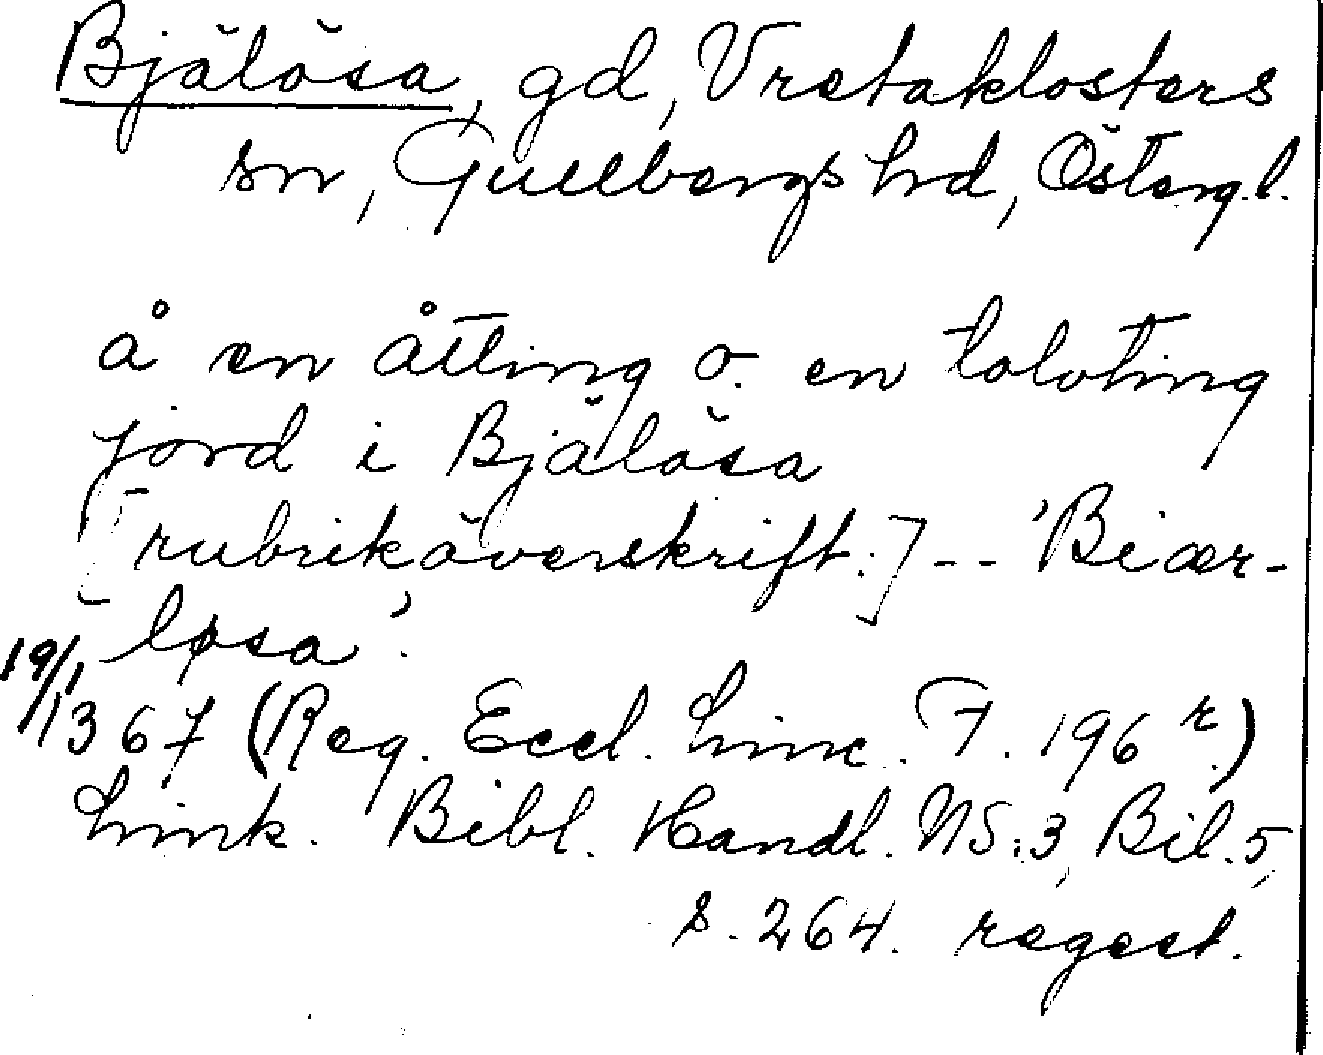 Bjälösa, gd, Vretaklosters
sn, Gullbergs hrd, Östergl.
å en åtting o. en tolvting
jord i Bjälösa
[rubriköverskrift.] -- 'Biær-
løsa'.
19/1 1367 (Reg. Eccl. Linc. F. 196 r.)
Link. Bibl. Handl. NS:3, Bil. 5,
s. 264. regest.